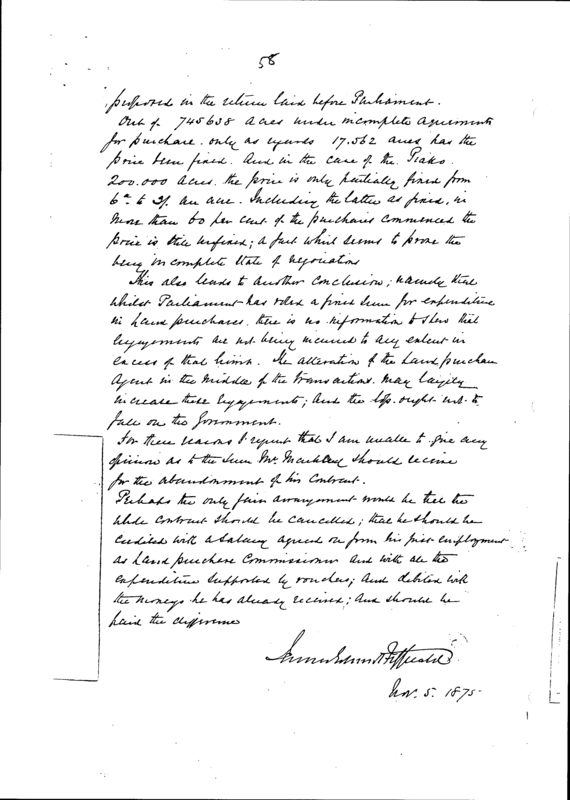 58
proposed in the return laid before Parliament.
Out of 745638 acres under incomplete agreements
for purchase. only as regards 17.562 acres has the
price been fixed. And in the case of the Piako.
200.000 acres. the price is only partially fixed from
to 2/. an acre. Including the latter as fixed, in
more than 60 per cent of the purchases commenced the
price is still unfixed; a fact which seems to prove the
very incomplete state of negotiations
This also leads to another conclusion; namely that
whilst Parliament has voted a fixed sum for expenditure
in Land purchases. there is no information to shew that
engagements are not being incurred to any extent in
excess of that limit. The alteration of the Land purchase
Agent in the middle of the transactions. may largely
increase these engagements; and the loss. ought not to
fall on the Government.
For these reasons I regret that I am unable to give any
opinion as to the sum Mr. Mackay should receive
for the abandonment of his contract.
Perhaps the only fair arrangement would be that the
whole contract should be cancelled; that he should be
credited with a salary agreed on from his first employment
as Land purchase Commissioner and with all the
expenditure supported by vouchers; and debited with
the moneys he has already received; and should be
paid the difference
James Edward FitzGerald
Nov. 5. 1875.